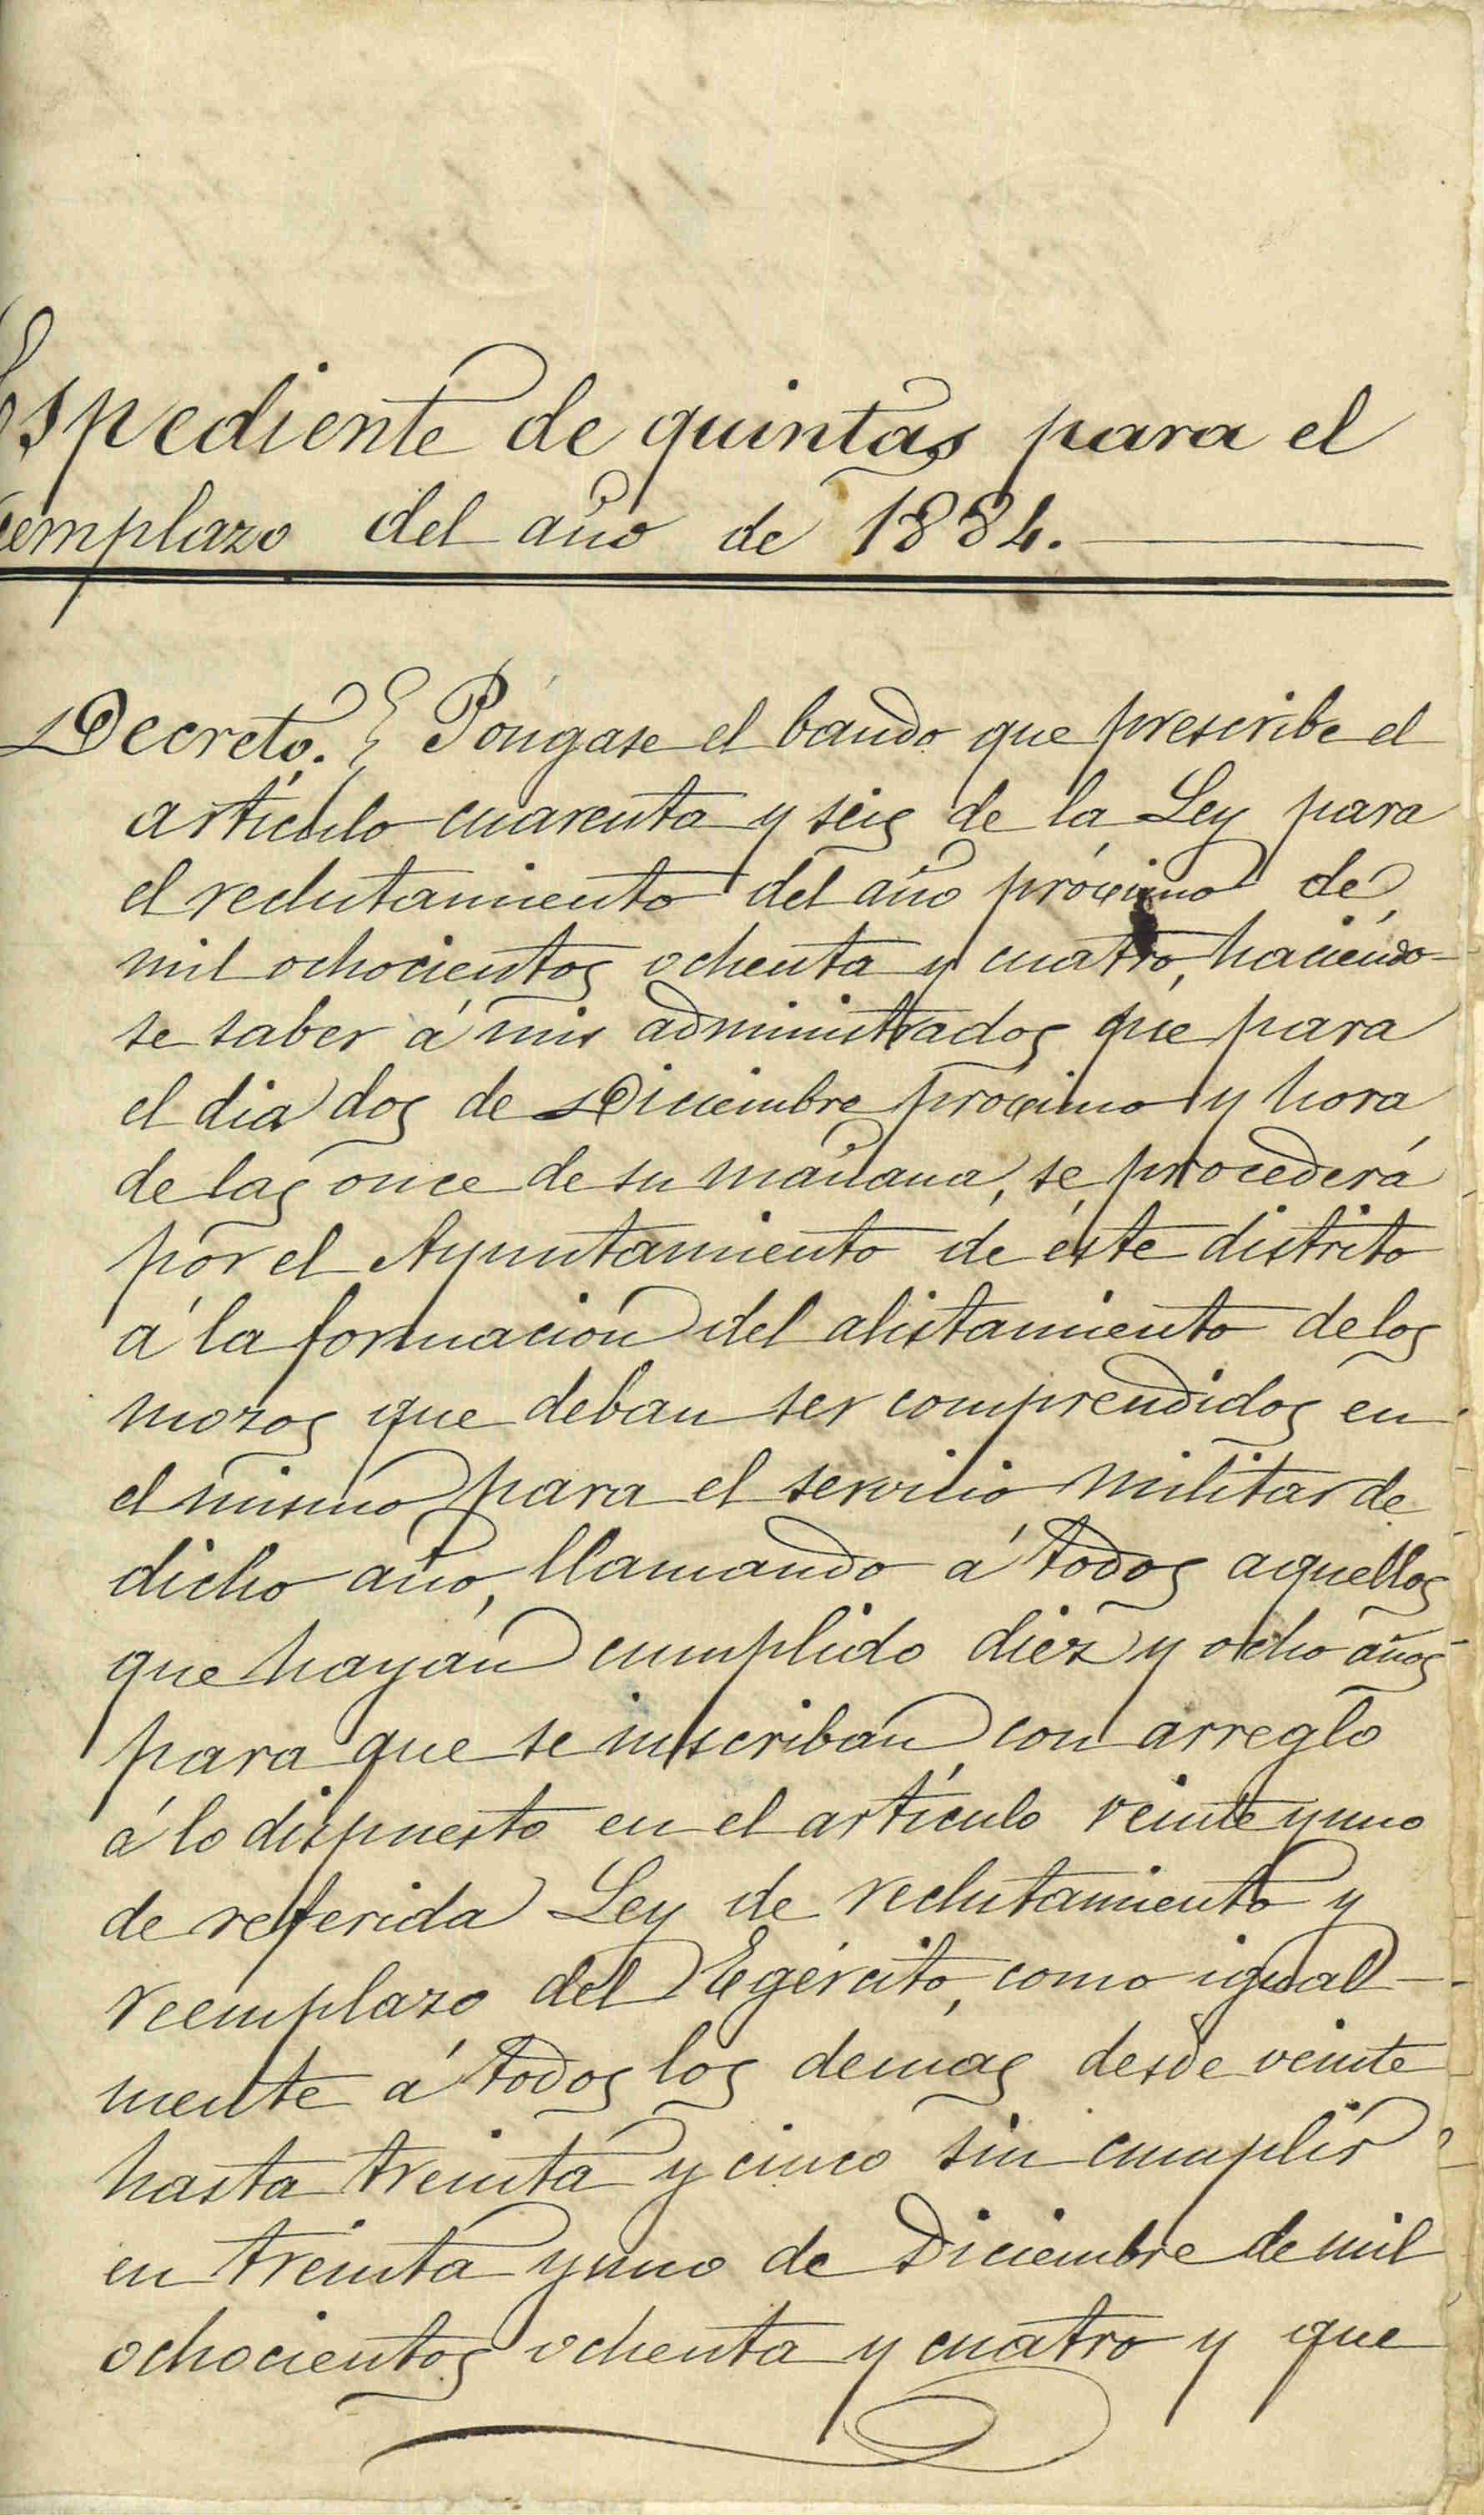 Espediente de quintas para el
reemplazo del año de 1884.
Decreto. Póngase el bando que prescribe el
artículo cuarenta y seis de la Ley para
el reclutamiento del año prócsimo de
mil ochocientos ochenta y cuatro, haciendo-
se saber á mis administrados que para
el dia dos de Diciembre procsimo y hora
de las once de su mañana, se procederá
por el Ayuntamiento de éste distrito
á la formacion del alistamiento de los
mozos que deban ser comprendidos en
el mismo para el servicio militar de
dicho año, llamando á todos aquellos
que hayan cumplido diez y ocho años
para que se inscriban con arreglo
á lo dispuesto en el artículo veinte y uno
de referida Ley de reclutamiento y
reemplazo del Egército, como igual-
mente á todos los demas desde veinte
hasta treinta y cinco sin cumplir
en treinta y uno de Diciembre de mil
ochocientos ochenta y cuatro y que